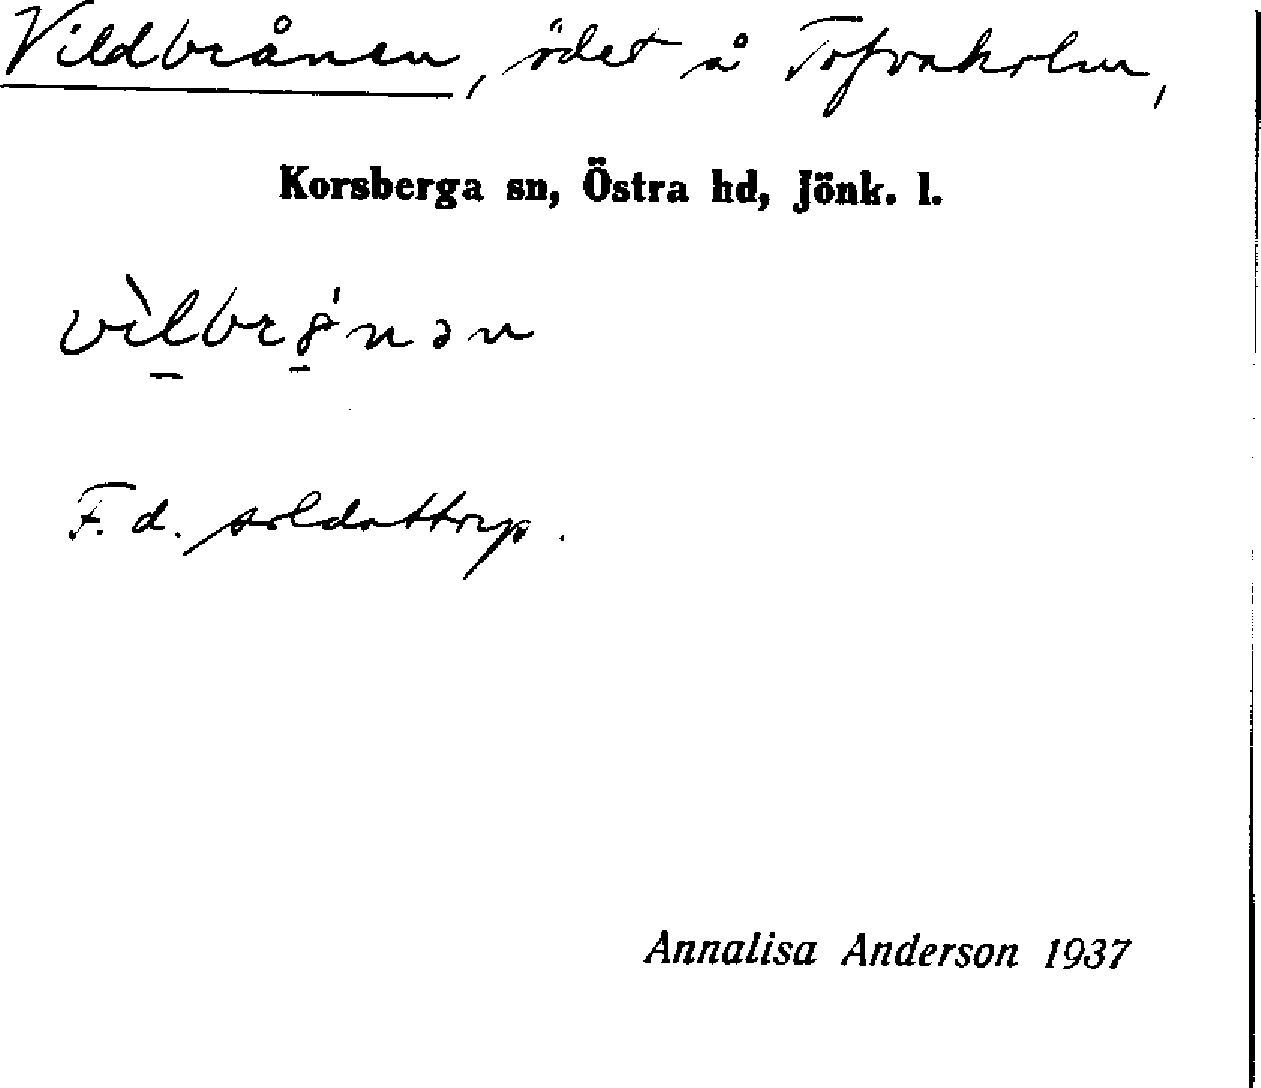 Vildbrånen, ödet å Tofvaholm,
Korsberga sn, Östra hd, Jönk. l.
F. d. soldattorp.
Annalisa Anderson 1937